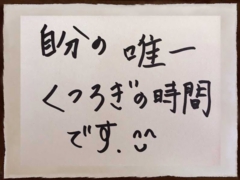 自分の 唯一
くつろぎの時間
です.^^